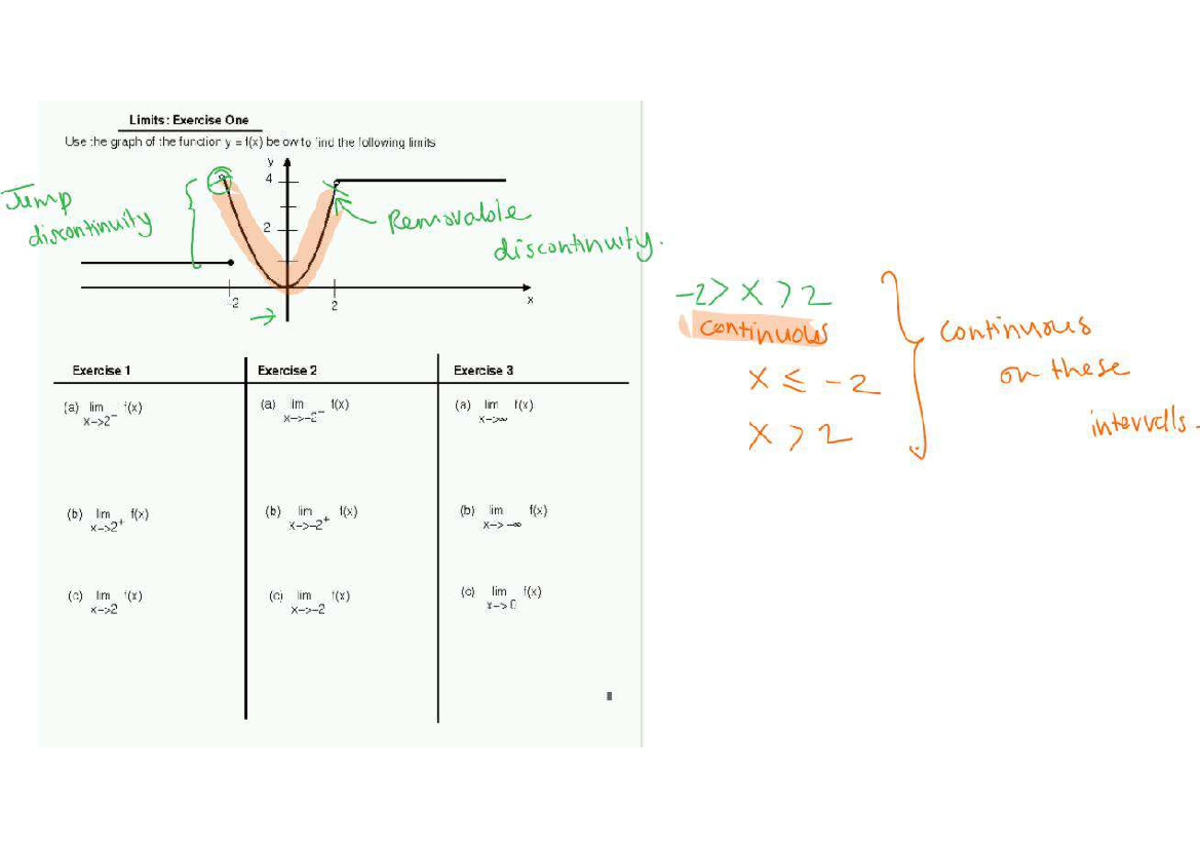 Limits: Exercise One
Use the graph of the function y = f(x) below to find the following limits
y
4
2
-2
2
x
Jump
discontinuity
Removable
discontinuity.
-2 > x > 2
continuous
x ≤ -2
x > 2
continuous
on these
intervals.
Exercise 1
Exercise 2
Exercise 3
(a) lim f(x)
x->2⁻
(a) lim f(x)
x->-2⁻
(a) lim f(x)
x->∞
(b) lim f(x)
x->2⁺
(b) lim f(x)
x->-2⁺
(b) lim f(x)
x->-∞
(c) lim f(x)
x->2
(c) lim f(x)
x->-2
(c) lim f(x)
x->0